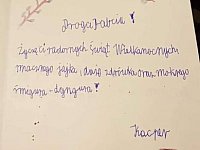 Droga Babciu!
Życzę Ci radosnych Świąt Wielkanocnych
smacznego jajka i dużo zdrówka oraz mokrego
śmigusa-dyngusa!
Kacper